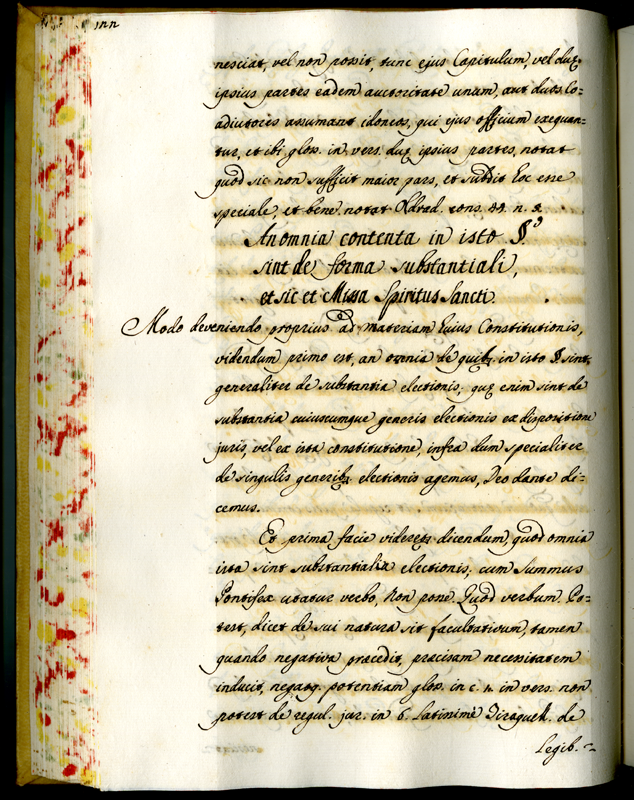 122
nesciat, vel non possit, tunc ejus Capitulum, vel duæ
ipsius partes eadem auctoritate unum, aut duos Co=
adiutores assumant idoneos, qui ejus officium exequan=
tur, et ibi glos. in vers. duæ ipsius partes, notat
quod sic non sufficit maior pars, et subdit hoc esse
speciale, et bene notat Aldrad. cons. n. 3.
An omnia contenta in isto §.º
sint de forma substantiali,
et sic et Missa Spiritus Sancti.
Modo deveniendo proprius ad materiam huius Constitutionis,
videndum primo est, an omnia de quib9 in isto § sint
generaliter de substantia electionis; quæ enim sint de
substantia cuiuscumque generis electionis ex dispositione
juris, vel ex ista constitutione, infra dum specialiter
de singulis generib9 electionis agemus, Deo dante di=
cemus.
Et prima facie videret9 dicendum, quod omnia
ista sint substantialia electionis, cum Summus
Pontifex utatur verbo, Non pone. Quod verbum Po=
test, licet de sui natura sit facultativum, tamen
quando negativa præcedit, præcisam necessitatem
inducit, negatq. potentiam glos. in c. in vers. non
potest de regul. jur. in 6. latissimè Tiraquell. de
Legib.